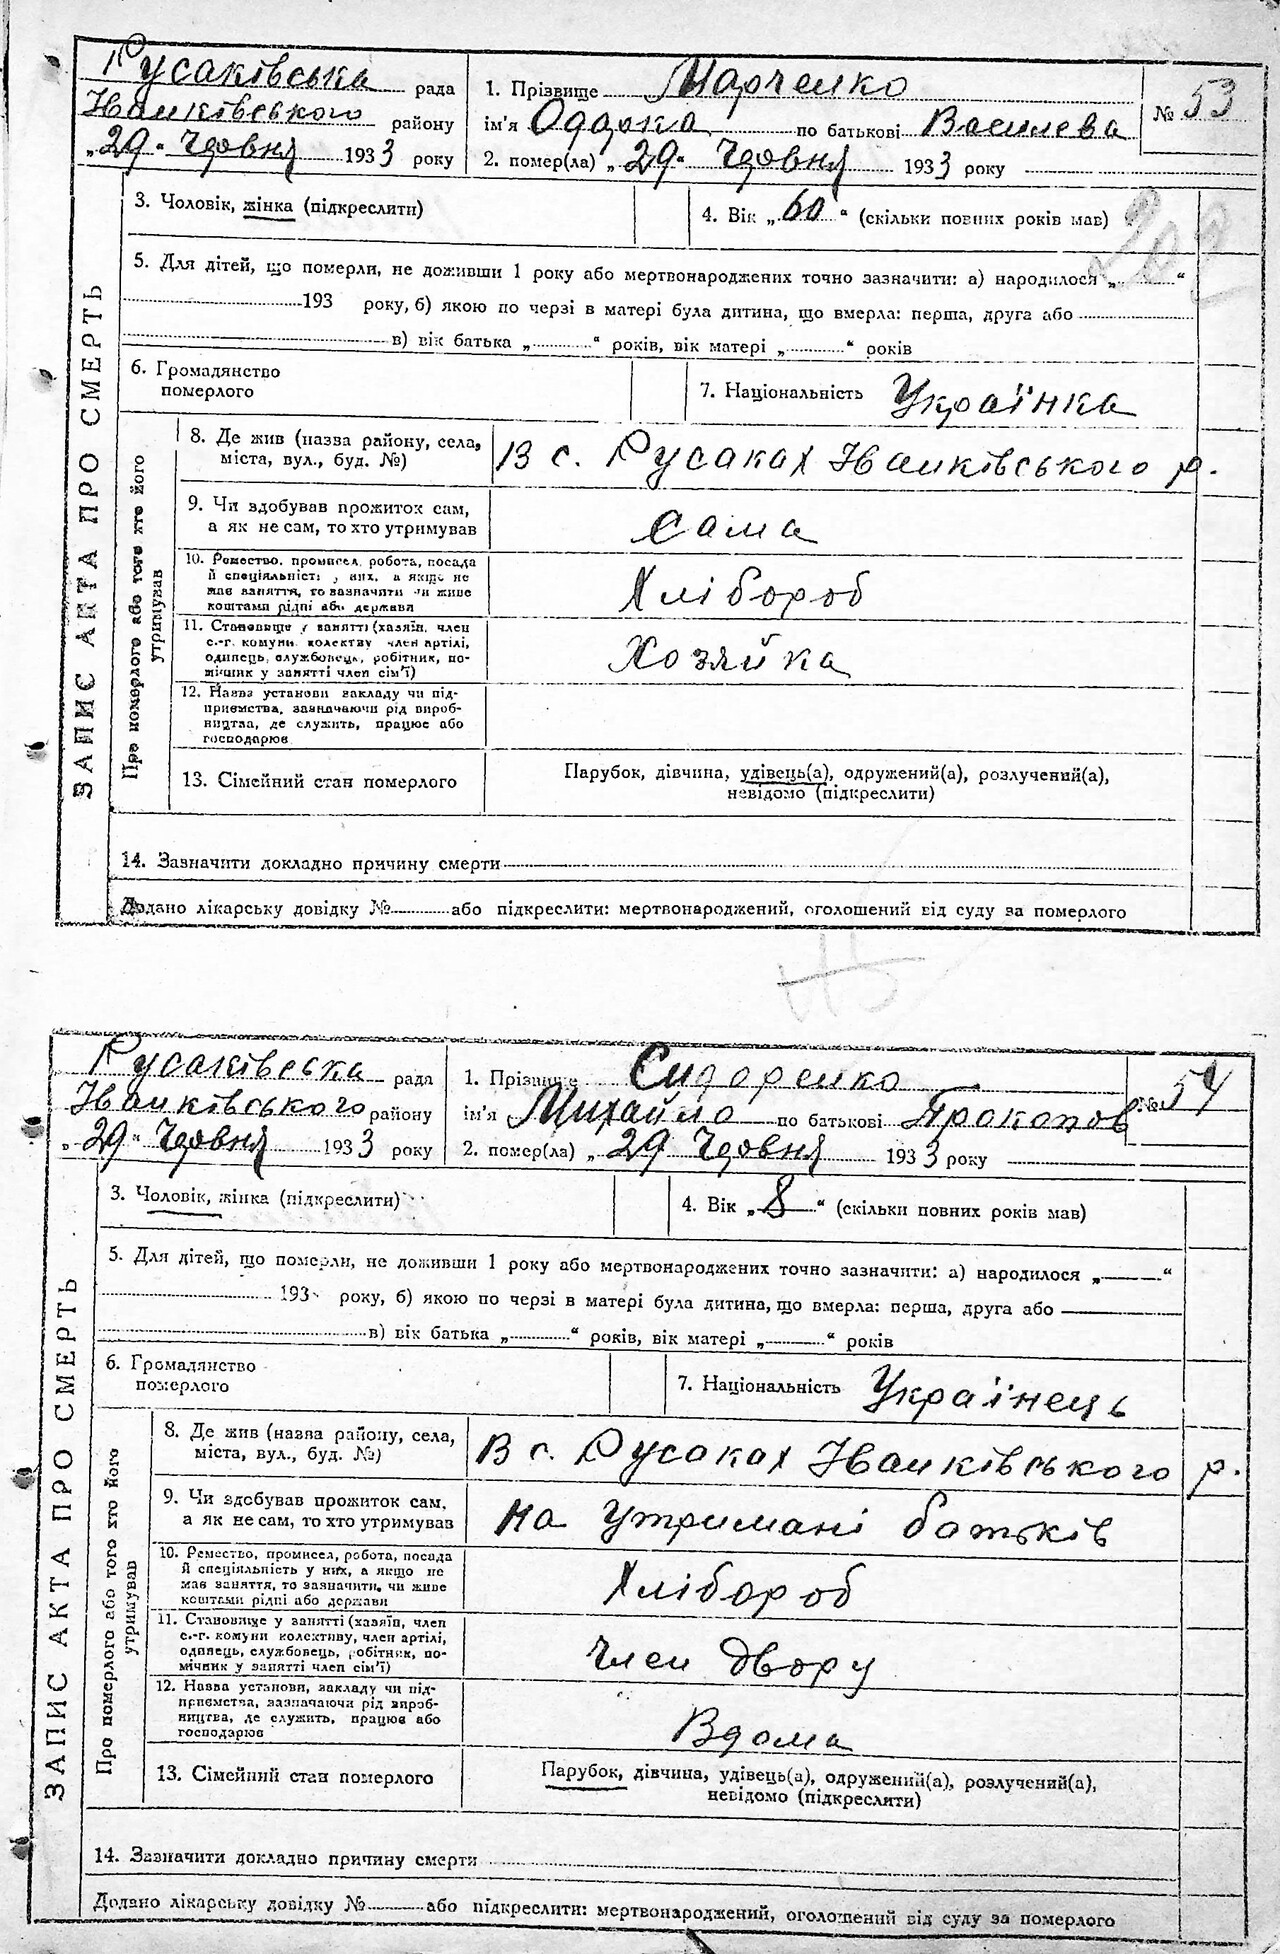 Русаківська рада
Іванківського району
„29" Червня 1933 року
1. Прізвище Марченко
ім'я Одарка по батькові Василева
2. помер(ла) „29" Червня 1933 року
№ 53
3. Чоловік, жінка (підкреслити)
4. Вік „60" (скільки повних років мав)
202
5. Для дітей, що померли, не доживши 1 року або мертвонароджених точно зазначити: а) народилося „ "
193 року, б) якою по черзі в матері була дитина, що вмерла: перша, друга або
в) вік батька „ " років, вік матері „ " років
6. Громадянство
померлого
7. Національність Українка
ЗАПИС АКТА ПРО СМЕРТЬ
Про померлого або того хто його
утримував
8. Де жив (назва району, села,
міста, вул., буд. №)
В с. Русаках Іванківського р.
9. Чи здобував прожиток сам,
а як не сам, то хто утримував
сама
10. Ремество, промисел, робота, посада
й спеціялність у них, а якщо не
має заняття, то зазначити чи живе
коштами рідні або держави
Хлібороб
11. Становище у занятті (хазяїн, член
с.-г. комуни, колективу член артілі,
одинець, службовець, робітник, по-
мічник у занятті член сім'ї)
Хозяйка
12. Назва установи закладу чи під-
приємства, зазначаючи рід вироб-
ництва, де служить, працює або
господарює
13. Сімейний стан померлого
Парубок, дівчина, удівець(а), одружений(а), розлучений(а),
невідомо (підкреслити)
14. Зазначити докладно причину смерти
Додано лікарську довідку № або підкреслити: мертвонароджений, оголошений від суду за померлого
Русаківська рада
Іванківського району
„29" Червня 1933 року
1. Прізвище Сидоренко
ім'я Михайло по батькові Прокопов
2. помер(ла) „29 Червня 1933 року
№ 54
3. Чоловік, жінка (підкреслити)
4. Вік „8" (скільки повних років мав)
5. Для дітей, що померли, не доживши 1 року або мертвонароджених точно зазначити: а) народилося „ "
193 року, б) якою по черзі в матері була дитина, що вмерла: перша, друга або
в) вік батька „ " років, вік матері „ " років
6. Громадянство
померлого
7. Національність Українець
ЗАПИС АКТА ПРО СМЕРТЬ
Про померлого або того хто його
утримував
8. Де жив (назва району, села,
міста, вул., буд. №)
В с. Русаках Іванківського р.
9. Чи здобував прожиток сам,
а як не сам, то хто утримував
на утримані батьків
10. Ремество, промисел, робота, посада
й спеціяльність у них, а якщо не
має заняття, то зазначити, чи живе
коштами рідні або держави
Хлібороб
11. Становище у занятті (хазяїн, член
с.-г. комуни колективу, член артілі,
одинець, службовець, робітник, по-
мічник у занятті член сім'ї)
Член двору
12. Назва установи, закладу чи під-
приємства, зазначаючи рід вироб-
ництва, де служить, працює або
господарює
Вдома
13. Сімейний стан померлого
Парубок, дівчина, удівець(а), одружений(а), розлучений(а),
невідомо (підкреслити)
14. Зазначити докладно причину смерти
Додано лікарську довідку № або підкреслити: мертвонароджений, оголошений від суду за померлого